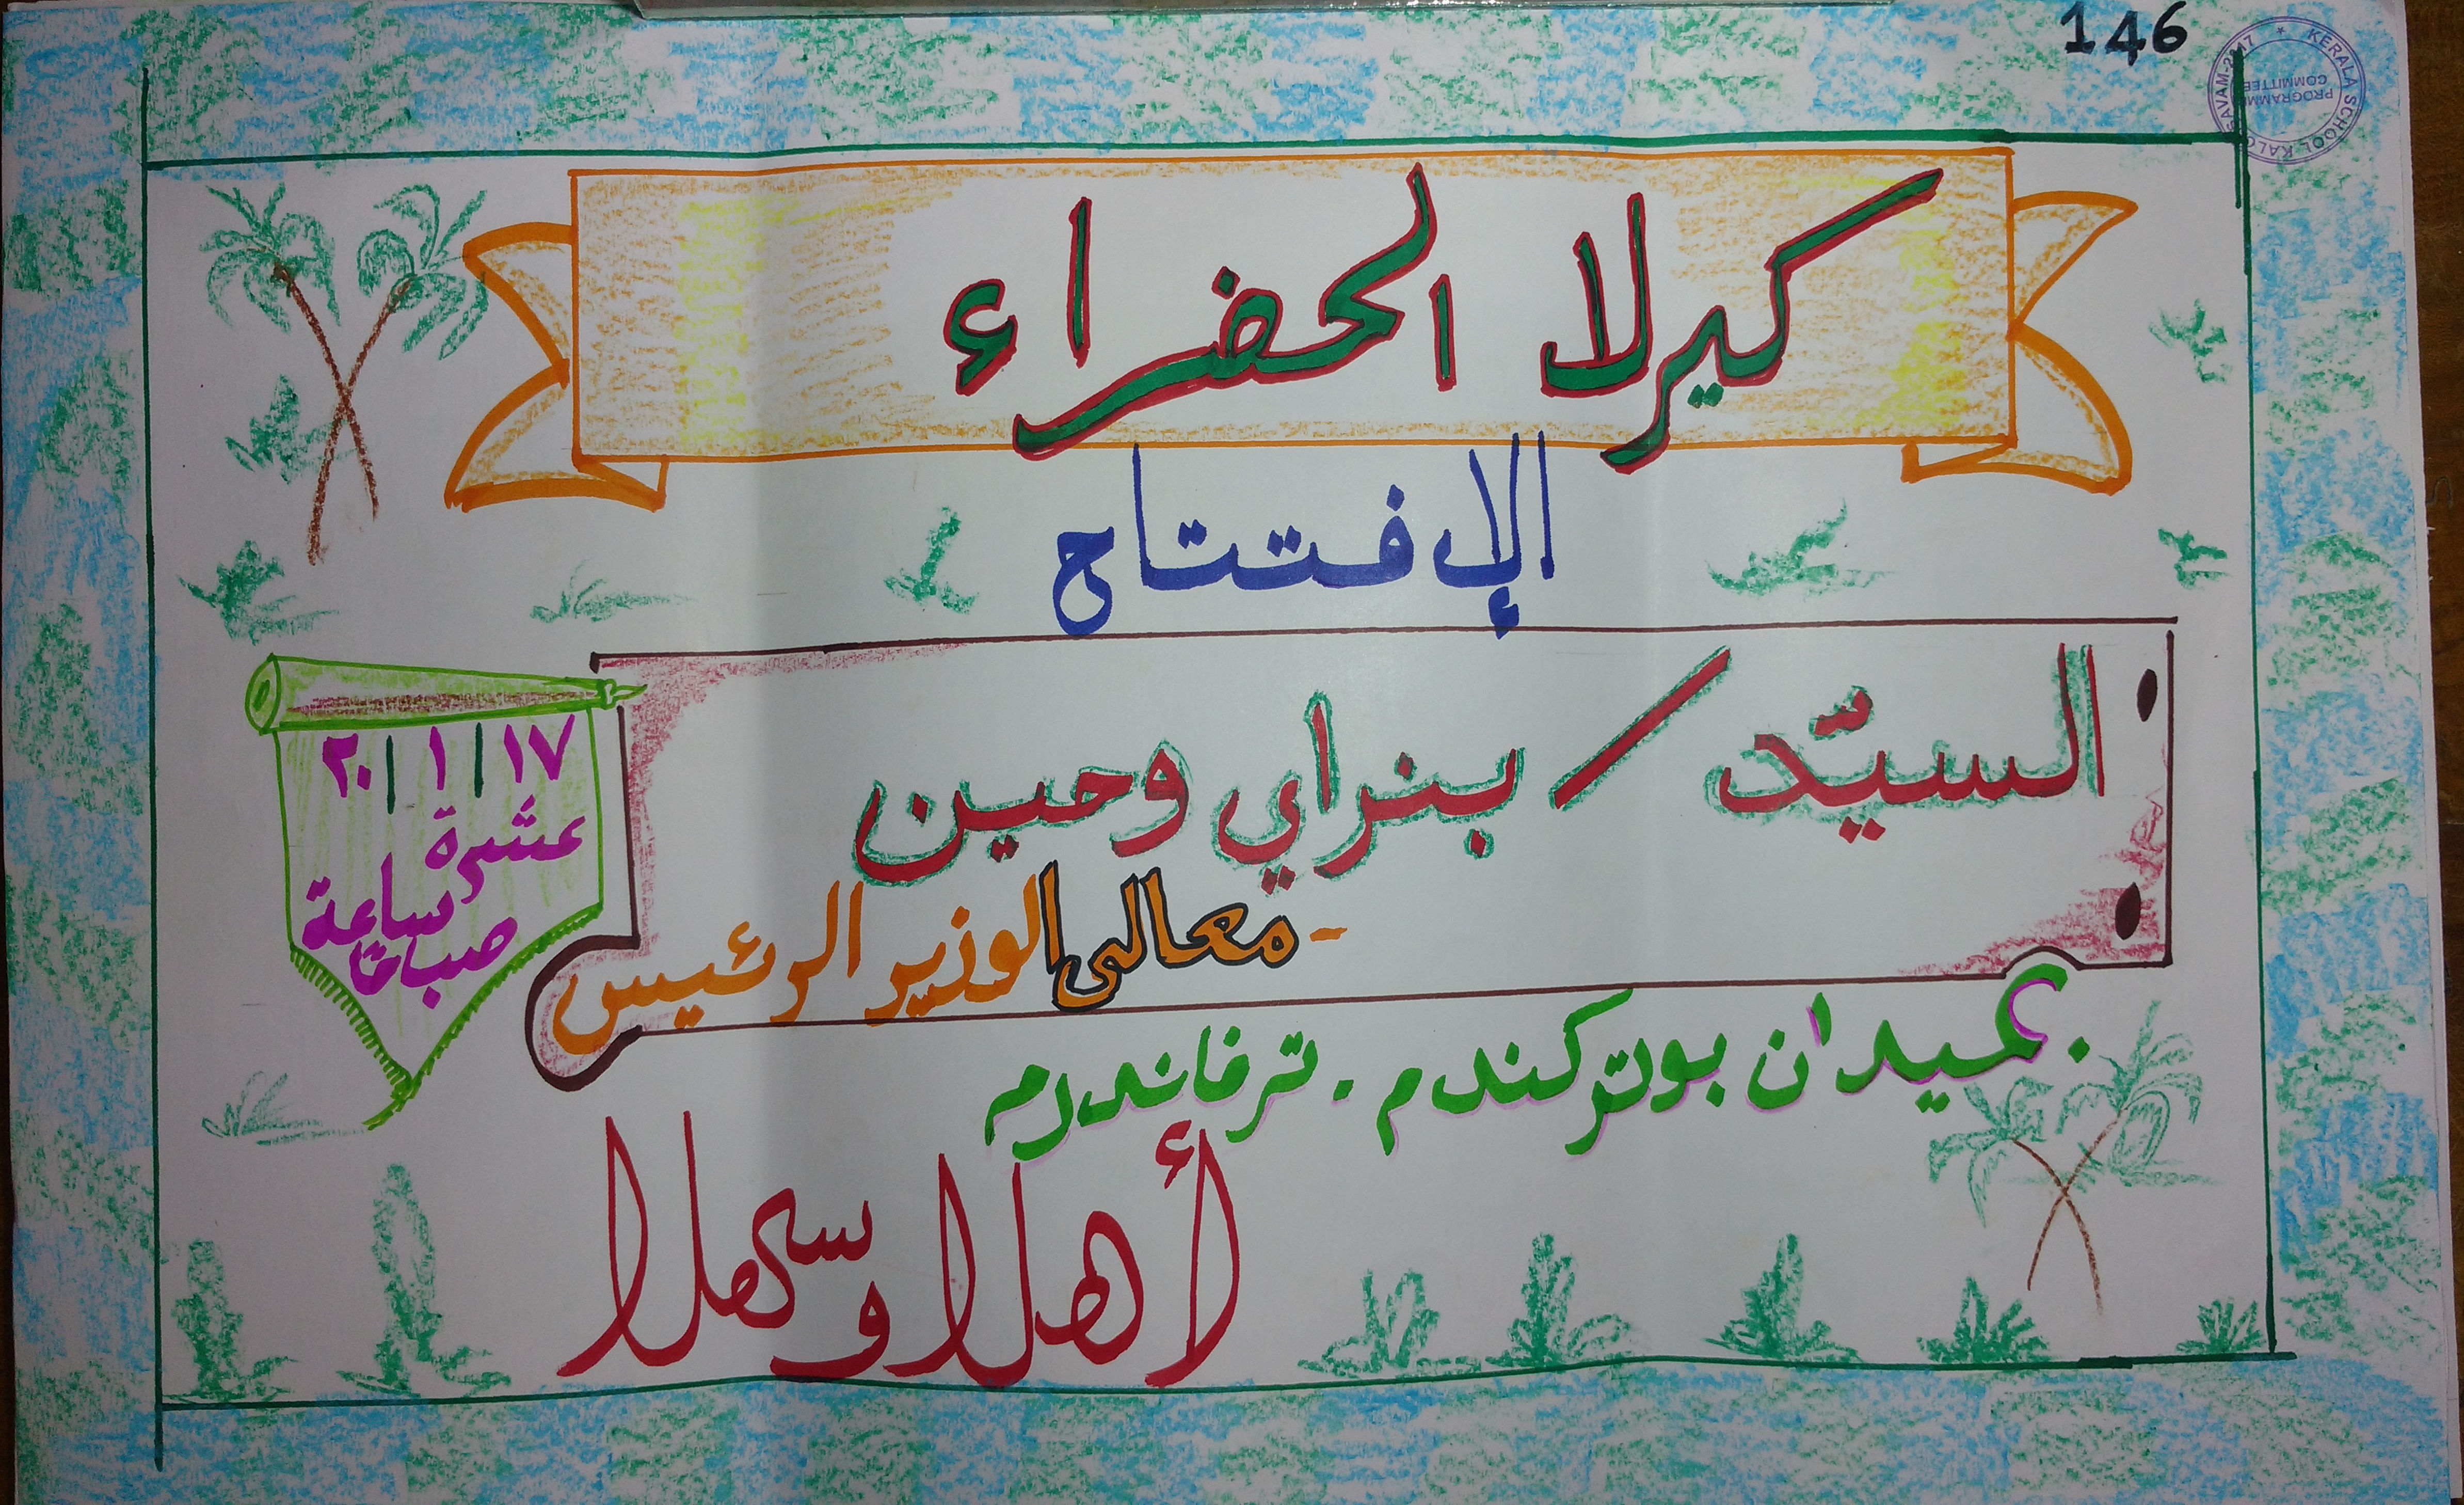 146
KERALA SCHOOL KALOLSAVAM-2017
PROGRAMME
COMMITTEE
كيرلا الحضراء
الإفتتاح
السيّد / بنراي وحين
- معالى الوزير الرئيس
١٧ | ١ | ٢٠
عشرة
ساعة
صباحًا
بميدان بوتركندم . ترفاندرم
أهلا وسهلا